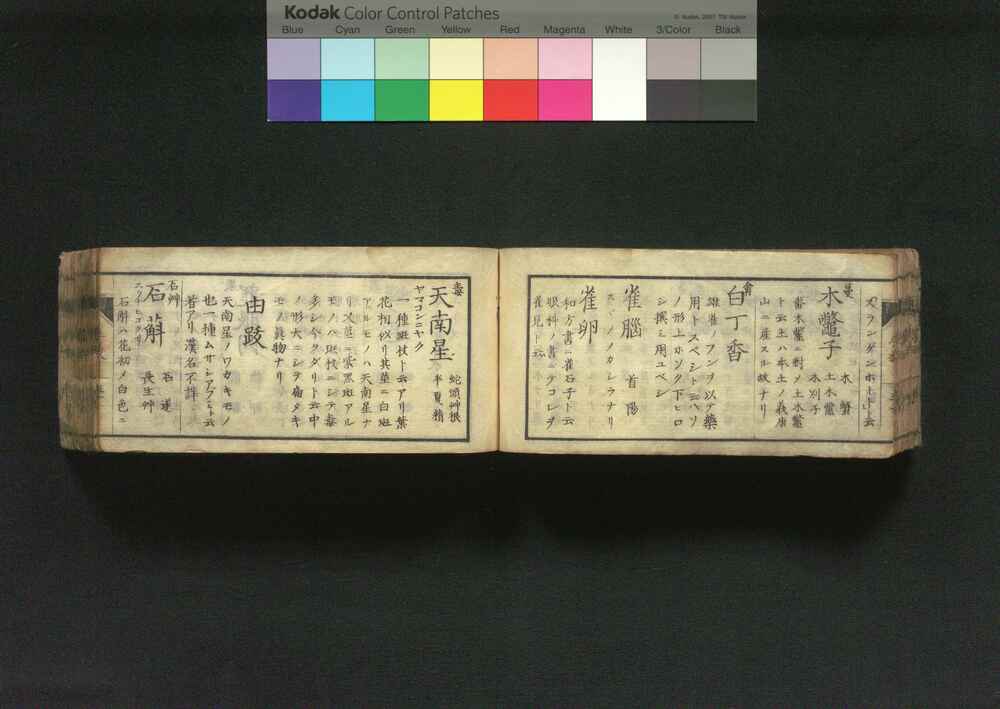 Kodak Color Control Patches
© Kodak, 2007 TM: Kodak
Blue Cyan Green Yellow Red Magenta White 3/Color Black
木鼈子
木蟹
土木鼈
木別子
番木鼈ニ對メ土木鼈
ト云土ハ本土ノ義唐
山ニ産スル故ナリ
禽
白丁香
雄雀ノフンヲ以テ藥
用トスベシト云ハソ
ノ形上カソク下ヒロ
シ撰ミ用ユベシ
雀腦
首陽
スヾメノカシラナリ
雀卵
和方書ニ雀石子ト云
眼科ノ書ニテコレヲ
雀兒ト云
毒
天南星
ヤマコンニヤク
蛇頭艸根
半夏精
一種斑杖ト云アリ葉
花相似リ其莖ニ白斑
アルモノハ天南星ナ
リ又莖ニ紫黑斑アル
モノハ斑杖ニシテ毒
多シ今クダリト云中
ノ形大ニシテ扁タキ
モノ眞物ナリ
由跋
天南星ノワカキモノ
也一種ムサシアブミト云
者アリ漢名不詳
石艸
石斛
石蓮
長生艸
石斛ハ花初メ白色ニ